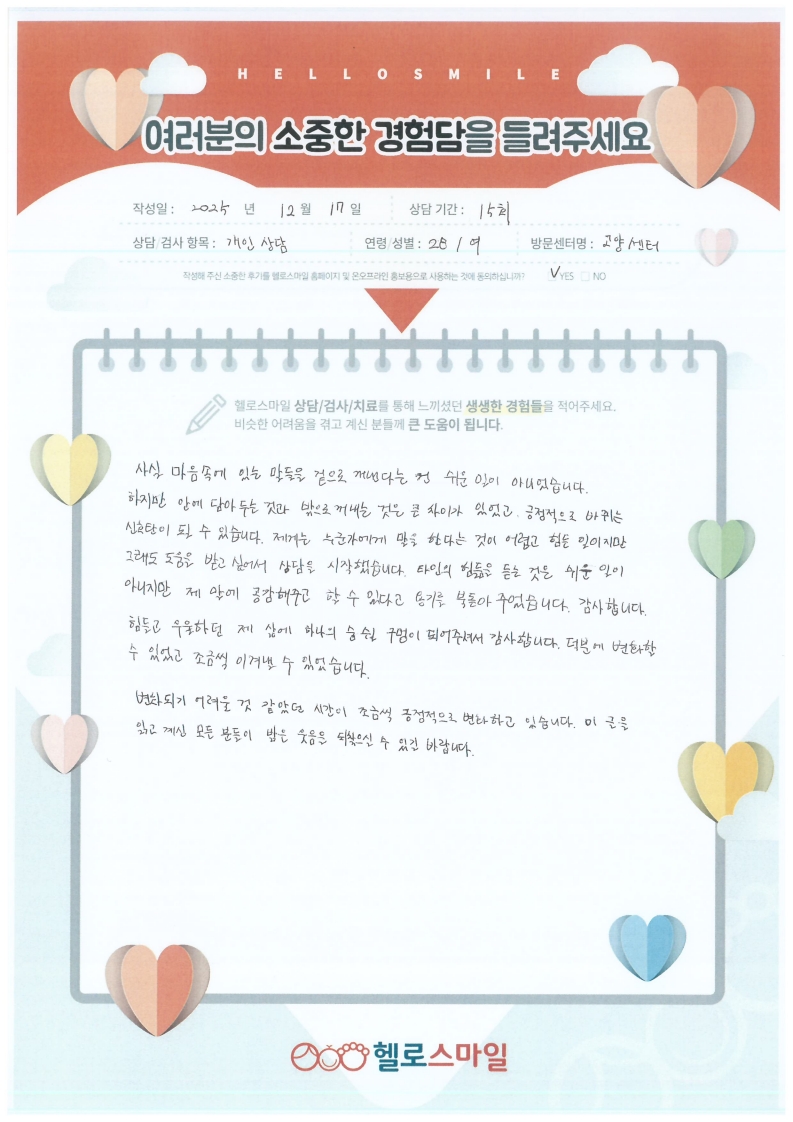 HELLOSMILE
여러분의 소중한 경험담을 들려주세요
작성일 : 2025 년 12월 17일 상담 기간 : 15회
상담/검사 항목 : 개인 상담 연령/성별 : 28 / 여 방문센터명 : 고양 센터
작성해 주신 소중한 후기를 헬로스마일 홈페이지 및 온오프라인 홍보용으로 사용하는 것에 동의하십니까? ✓YES □ NO
헬로스마일 상담/검사/치료를 통해 느끼셨던 생생한 경험들을 적어주세요.
비슷한 어려움을 겪고 계신 분들께 큰 도움이 됩니다.
사실 마음속에 있는 말들을 겉으로 꺼낸다는 건 쉬운 일이 아니었습니다.
하지만 안에 담아두는 것과 밖으로 꺼내는 것은 큰 차이가 있었고. 긍정적으로 바뀌는
신호탄이 될 수 있습니다. 제게는 누군가에게 말을 한다는 것이 어렵고 힘든 일이지만
그래도 도움을 받고 싶어서 상담을 시작했습니다. 타인의 힘듦을 듣는 것은 쉬운 일이
아니지만 제 말에 공감해주고 할 수 있다고 용기를 북돋아 주었습니다. 감사합니다.
힘들고 우울하던 제 삶에 하나의 숨쉴 구멍이 되어주셔서 감사합니다. 덕분에 변화할
수 있었고 조금씩 이겨낼 수 있었습니다.
변화되기 어려울 것 같았던 시간이 조금씩 긍정적으로 변화하고 있습니다. 이 글을
읽고 계신 모든 분들이 밝은 웃음을 되찾으실 수 있길 바랍니다.
헬로스마일